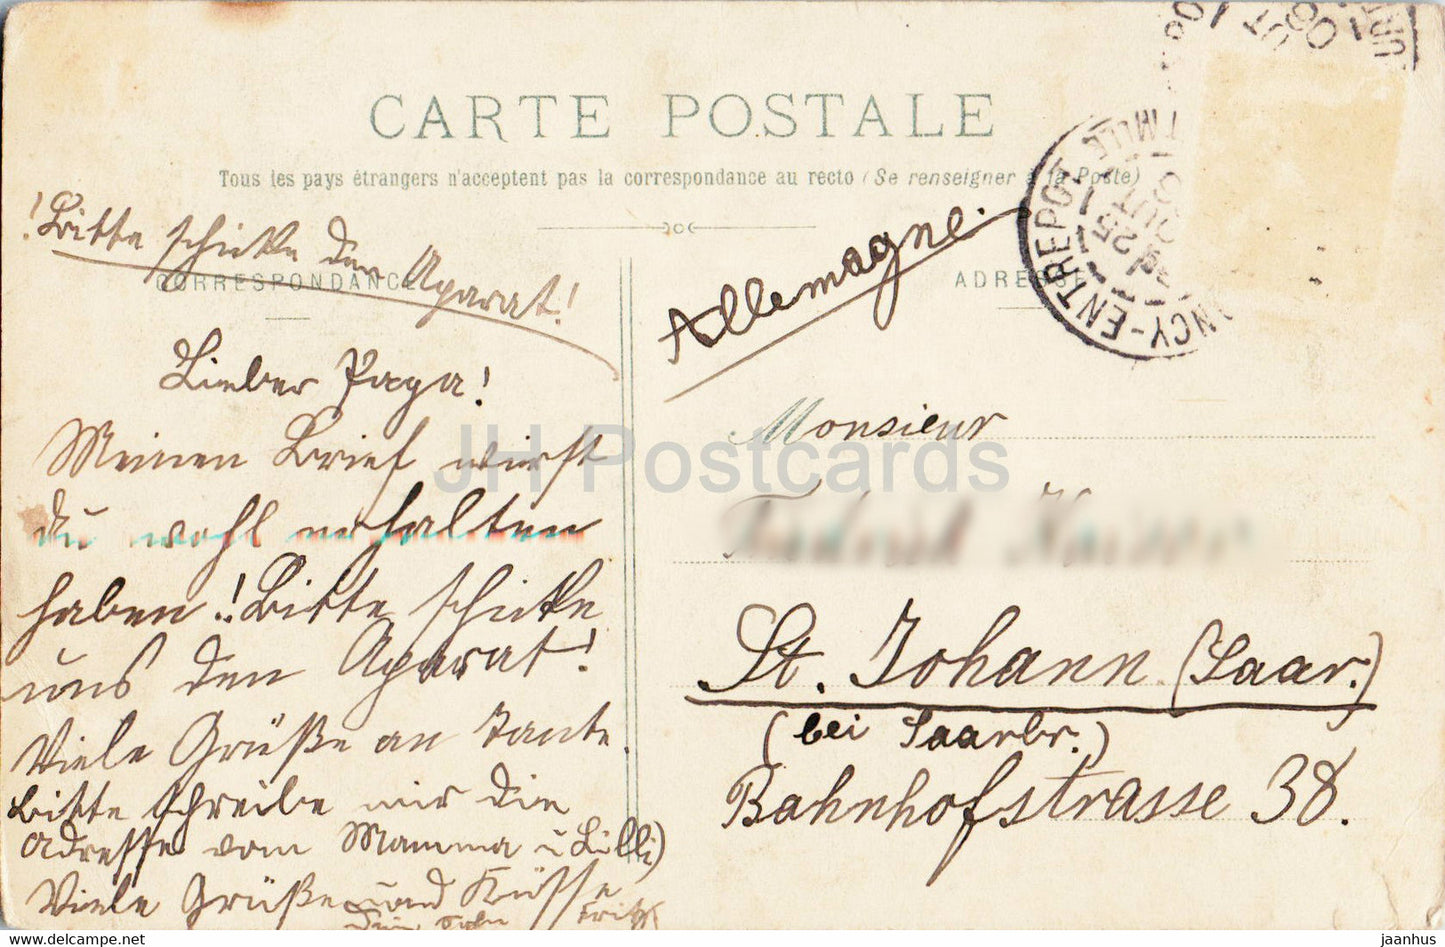 CARTE POSTALE
Tous les pays étrangers n'acceptent pas la correspondance au recto (Se renseigner à la Poste)
! Bitte schicke den Aparat!
CORRESPONDANCE
Lieber Papa!
Meinen Brief wirst
du wohl erhalten
haben! Bitte schicke
uns den Aparat!
Viele Grüße an Tante.
Bitte schreibe mir die
Adresse vom Mamma u Lilli)
Viele Grüße und Küsse
Dein Sohn Fritz
Allemagne.
ADRESSE
Monsieur
St. Johann (Saar.)
(bei Saarbr.)
Bahnhofstrasse 38.
NANCY-ENTREPOT
25
JH Postcards
JH Postcards
www.jaanhus.com